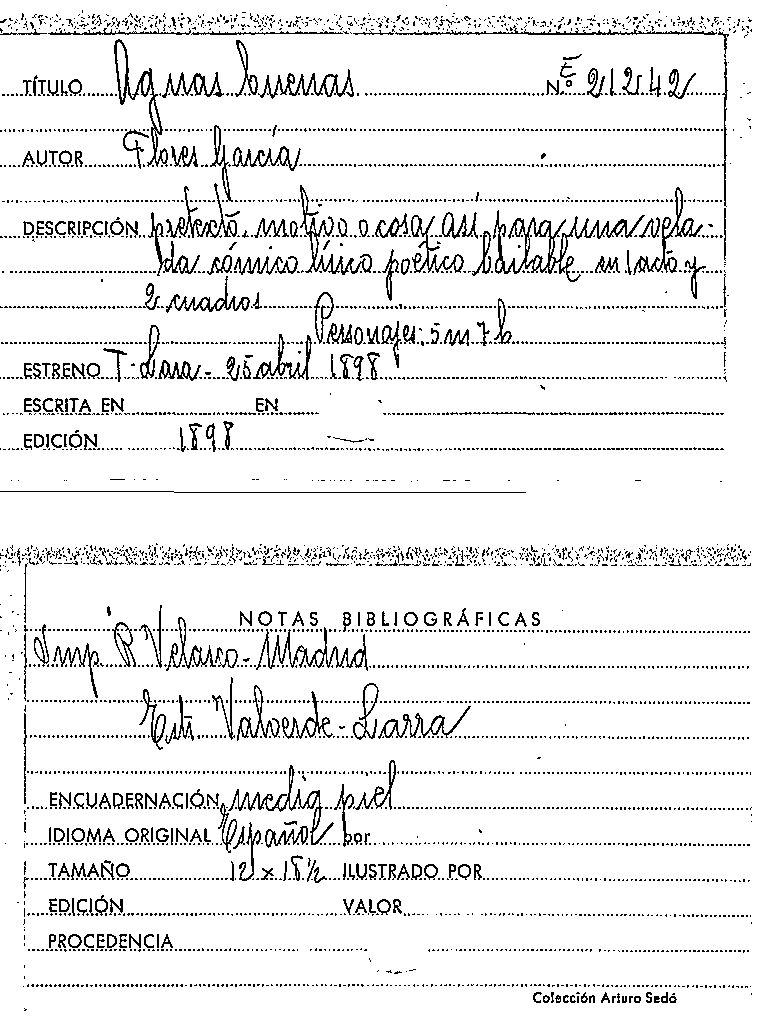 TÍTULO Aguas buenas N.º E 21242
AUTOR Flores García
DESCRIPCIÓN pretexto, motivo o cosa así para una vela-
da cómico lírico poético bailable en 1 acto y
2 cuadros
Personajes: 5 m 7 h
ESTRENO T. Lara - 25 abril 1898
ESCRITA EN EN
EDICIÓN 1898
NOTAS BIBLIOGRÁFICAS
Imp R Velasco - Madrid
Valverde - Larra
ENCUADERNACIÓN media piel
IDIOMA ORIGINAL Español por
TAMAÑO 12 x 18 ½ ILUSTRADO POR
EDICIÓN VALOR
PROCEDENCIA
Colección Arturo Sedó